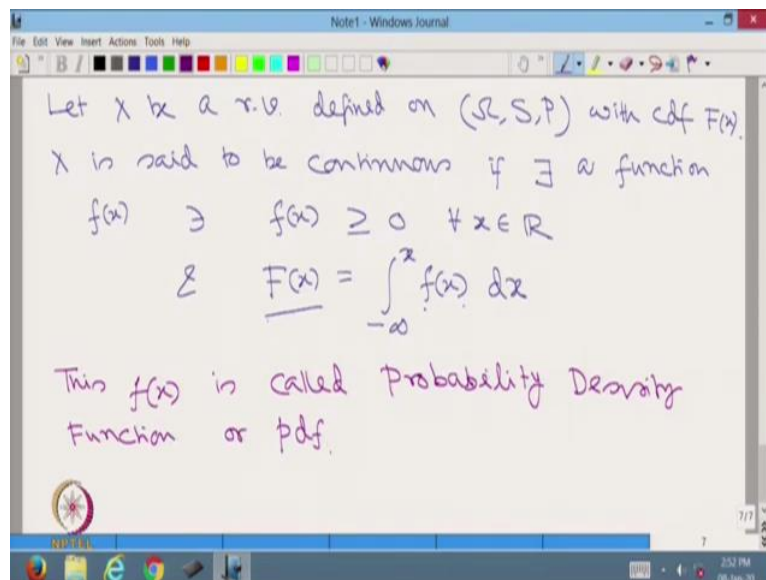 Note1 - Windows Journal
File Edit View Insert Actions Tools Help
Let X be a r.v. defined on (Ω, S, P) with cdf F(x).
X is said to be continuous if ∃ a function
f(x) ∋ f(x) ≥ 0 ∀ x ∈ R
& F(x) = ∫_{-∞}^{x} f(x) dx
This f(x) is called Probability Density
Function or pdf.
NPTEL
7/7
7
2:52 PM